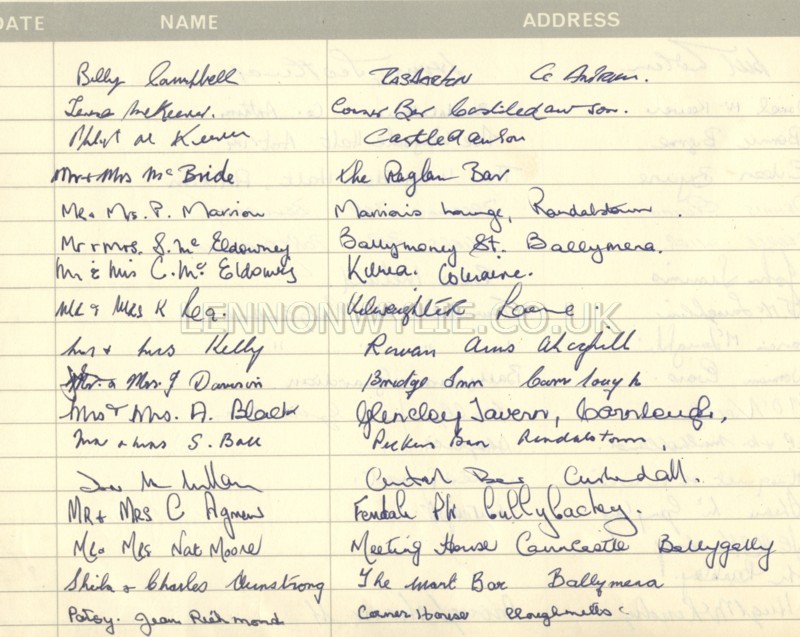 DATE NAME ADDRESS
Billy Campbell RASHARKIN Co Antrim.
McKeever. Corner Bar Castledawson.
Castledawson
Mr + Mrs McBride The Raglan Bar
Mr & Mrs. P. Marrion Marrion's Lounge, Randalstown.
Mr + Mrs. S. Mc Eldowney Ballymoney St. Ballymena.
Mr & Mrs C. Mc Eldowney Kilrea. Coleraine.
MR & MRS K Rea. Kilwaughter Larne
LENNONWYLIE.CO.UK
Mr & Mrs Kelly Rowan Arms Ahoghill
Mr. & Mrs. J Dawson Bridge Inn Carnlough
Mr & Mrs. A. Black Glencloy Tavern, Carnlough,
Mr & Mrs S. Ball Bar Randalstown,
Central Bar Cushendall.
MR & MRS C Agnew Fendale Pk Cullybackey.
Mr & Mrs Nat Moore Meeting House Cairncastle Ballygally
Sheila & Charles Armstrong The Mart Bar Ballymena
Patsy. Jean Richmond Corner House Cloughmills